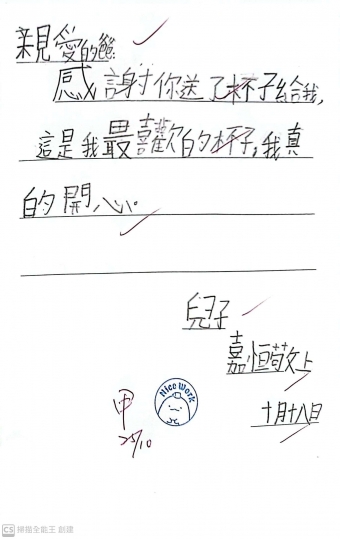 親愛的爸:
感謝你送了杯子給我,
這是我最喜歡的杯子,我真
的開心。
兒子
嘉恒敬上
十月十八日
Nice Work
甲
25/10
CS 掃描全能王 創建